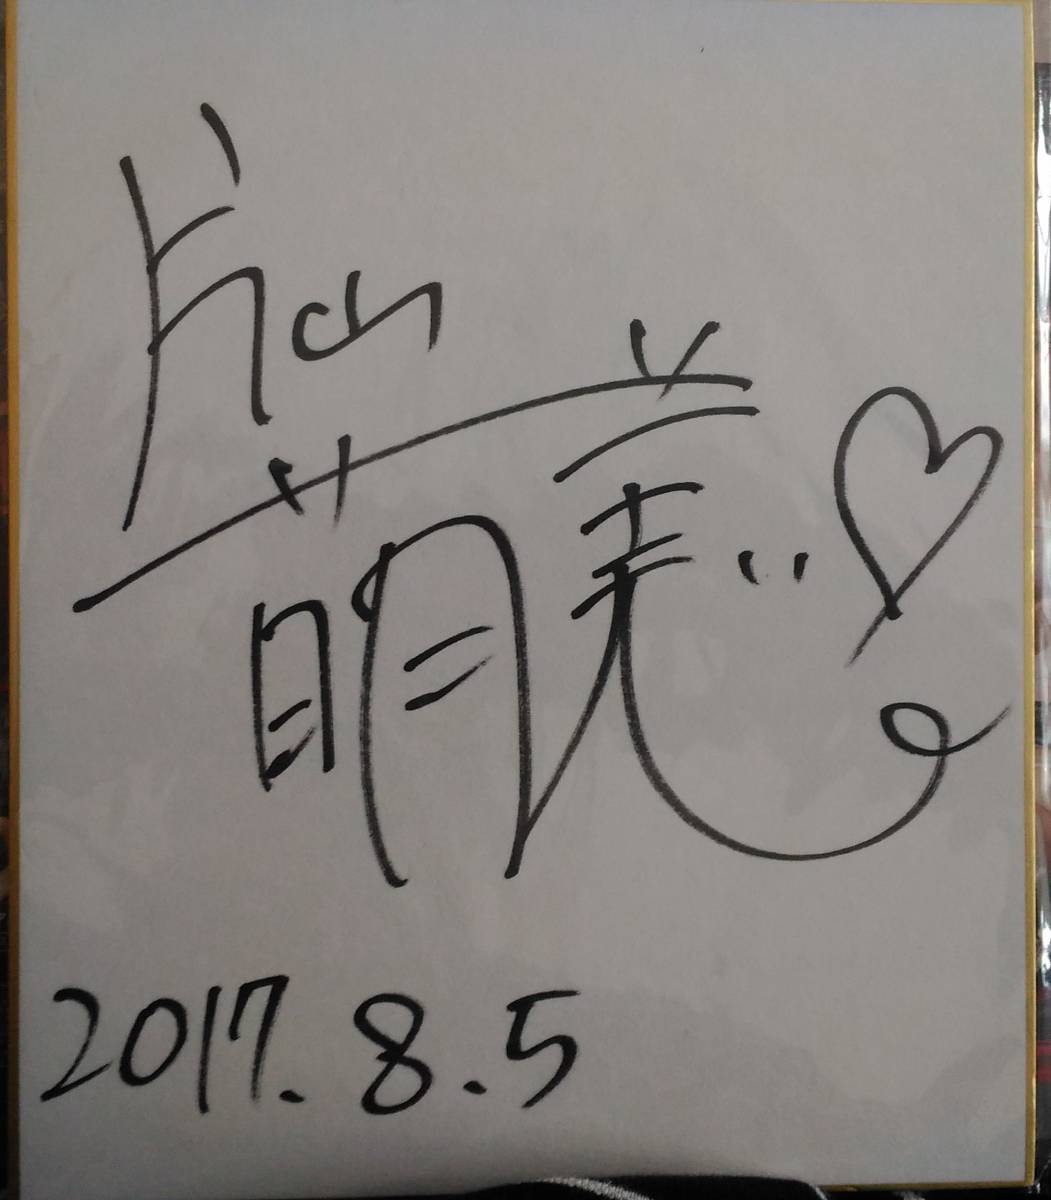 片山
萌美
2017.8.5